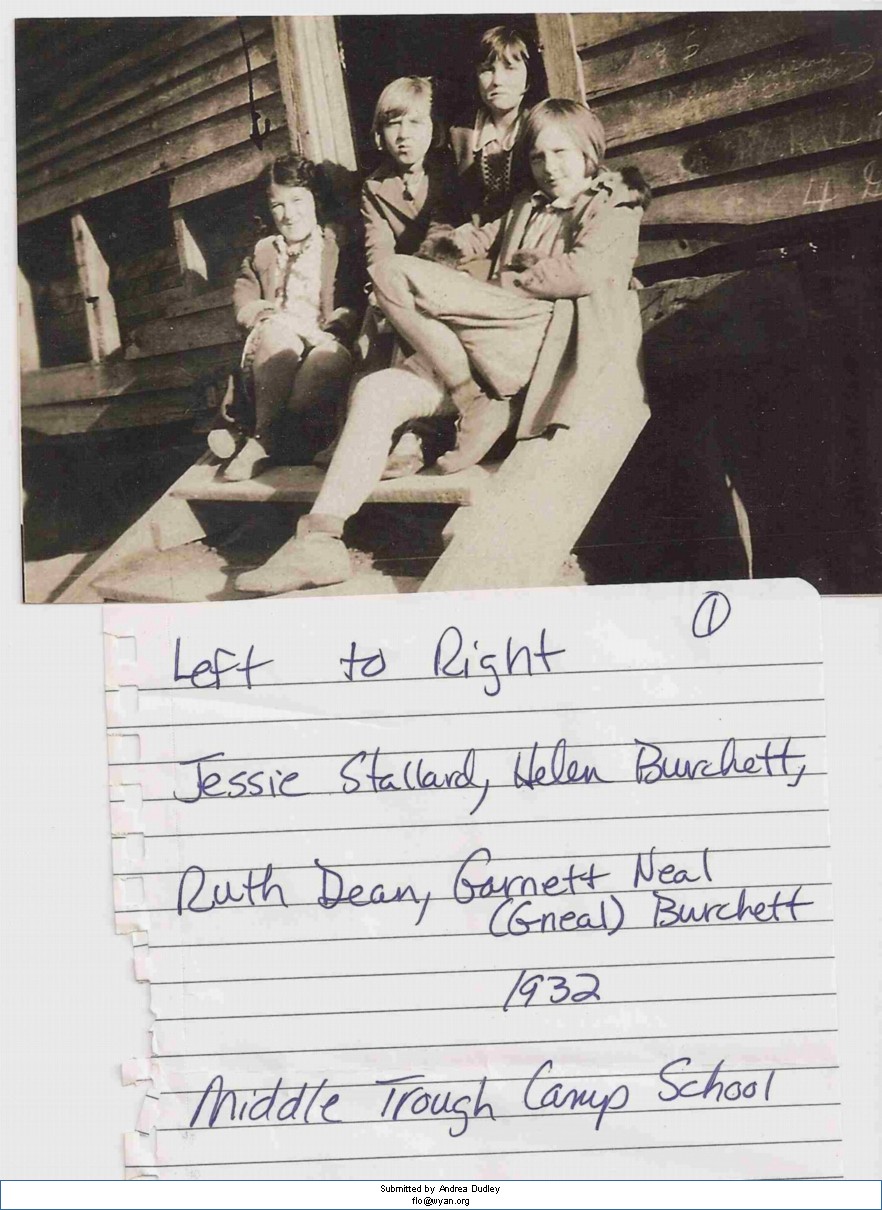 4
①
Left to Right
Jessie Stallard, Helen Burchett,
Ruth Dean, Garnett Neal
(Gneal) Burchett
1932
Middle Trough Camp School
Submitted by Andrea Dudley
flo@wyan.org